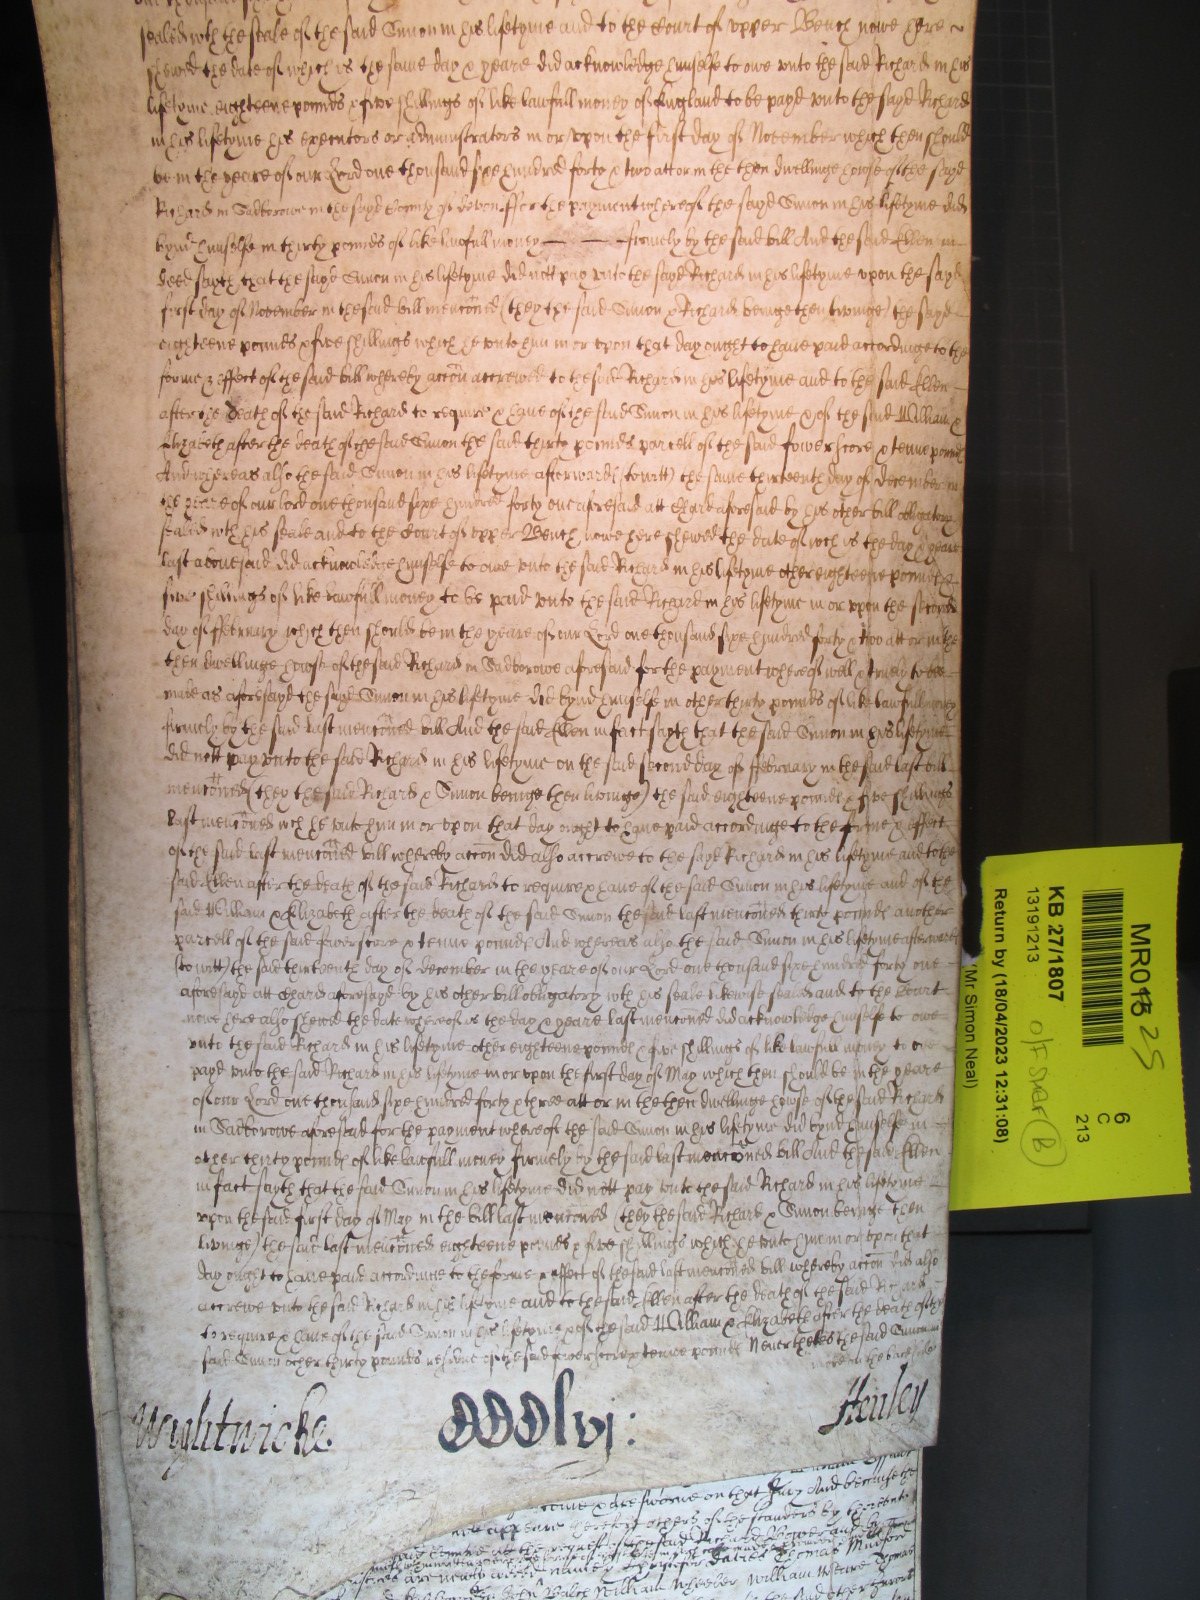 sealed with the seale of the said Simon in his lifetyme and to the Court of upper Bench nowe here
shewed the date of which is the same day & yeare did acknowledge himselfe to owe unto the said Richard in his
lifetyme eighteene pounds & five shillings of like lawfull money of England to be payd unto the sayd Richard
in his lifetyme his executors or administrators in or upon the first day of November which then should
be in the yeare of our Lord one thousand sixe hundred forty & two att or in the then dwellinge howse of the sayd
Richard in Sadborowe in the sayd County of Devon ffor the payment whereof the sayd Simon in his lifetyme did
bynd himselfe in thirty pounds of like lawfull money firmely by the said bill And the said Ellen in
deed sayth that the sayd Simon in his lifetyme did nott pay unto the sayd Richard in his lifetyme upon the sayd
first day of November in the said bill menconed (they the said Simon & Richard beinge then livinge) the sayd
eighteene pounds & five shillings which he unto him in or upon that day ought to have paid accordinge to the
forme & effect of the said bill whereby accon accrewed to the said Richard in his lifetyme and to the said Ellen
after the death of the said Richard to require & have of the said Simon in his lifetyme & of the said William &
Elizabeth after the death of the said Simon the said thirty pounds parcell of the said fower score & tenne pounds
And whereas also the said Simon in his lifetyme afterwards (towitt) the same thirteenth day of December in
the yeare of our Lord one thousand sixe hundred forty one aforesaid att Chard aforesaid by his other bill obligatory
sealed with his seale and to the Court of upper Bench nowe here shewed the date of wch is the day & yeare
last abovesaid did acknowledge himselfe to owe unto the said Richard in his lifetyme other eighteene pounds &
five shillings of like lawfull money to be paid unto the said Richard in his lifetyme in or upon the second
day of ffebruary which then should be in the yeare of our Lord one thousand sixe hundred forty & two att or in the
then dwellinge howse of the said Richard in Sadborowe aforesaid for the payment whereof well & truely to bee
made as aforesayd the sayd Simon in his lifetyme did bynd himselfe in other thirty pounds of like lawfull money
firmely by the said last menconed bill And the said Ellen in fact sayth that the said Simon in his lifetyme
did nott pay unto the said Richard in his lifetyme on the said second day of ffebruary in the said last bill
menconed (they the said Richard & Simon beinge then livinge) the said eighteene pounds & five shillings
last menconed wch he unto him in or upon that day ought to have paid accordinge to the forme & effect
of the said last menconed bill whereby accon did also accrewe to the sayd Richard in his lifetyme and to the
said Ellen after the death of the said Richard to require & have of the said Simon in his lifetyme and of the
said William & Elizabeth after the death of the said Simon the said last menconed thirty pounds another
parcell of the said fower score & tenne pounds And whereas also the said Simon in his lifetyme afterwards
(to witt) the said thirteenth day of December in the yeare of our Lord one thousand sixe hundred forty one
aforesayd att Chard aforesayd by his other bill obligatory with his seale likewise sealed and to the Court
nowe here also shewed the date whereof is the day & yeare last menconed did acknowledge himselfe to owe
unto the said Richard in his lifetyme other eighteene pounds & five shillings of like lawfull money to bee
payd unto the said Richard in his lifetyme in or upon the first day of May which then should be in the yeare
of our Lord one thousand sixe hundred forty & three att or in the then dwellinge howse of the said Richard
in Sadborowe aforesaid for the payment whereof the said Simon in his lifetyme did bynd himselfe in
other thirty pounds of like lawfull money firmely by the said last menconed bill And the said Ellen
in fact sayth that the said Simon in his lifetyme did nott pay unto the said Richard in his lifetyme
upon the said first day of May in the bill last menconed (they the said Richard & Simon beinge then
livinge) the said last menconed eighteene pounds & five shillings which he unto him in or upon that
day ought to have paid accordinge to the forme & effect of the said last menconed bill whereby accon did also
accrewe unto the said Richard in his lifetyme and to the said Ellen after the death of the said Richard
to require & have of the said Simon in his lifetyme & of the said William & Elizabeth after the death of the
said Simon other thirty pounds residue of the said fower score & tenne pounds Neverthelesse the said Simon in
more on the backside
Wyhtwicke
CCClvj:
Henley
are sworne on that Jury And because the
appeare therefore others of the standers by
at the request of the said Richard
are newly namely Thomas Mudford
John Balch William Wheeler William
MR015 25
6
C
213
KB 27/1807
13191213
Return by (18/04/2023 12:31:08)
(Mr Simon Neal)